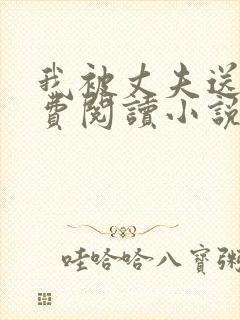 我被丈夫送
費閱讀小說
哇哈哈八寶粥